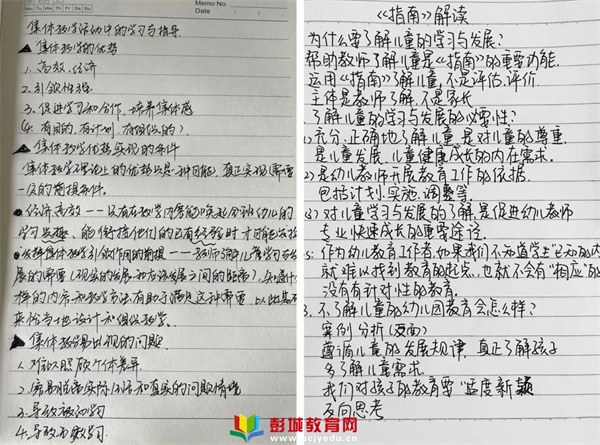 Mo Tu We Th Fr Sa Su
Memo No.
Date / /
集体教学活动中的学习与指导
▲集体教学的优势
1. 高效、经济
2. 引领性强
3. 促进学习和合作,培养集体感
(4. 有目的、有计划、有组织的)
▲集体教学优势实现的条件
集体教学理论上的优势只是一种可能,真正实现需要
一定的前提条件。
●经济高效——只有在教学内容能唤起全班幼儿的
学习兴趣、能衔接他们的已有经验时才可能发挥
展的需要(现实的发展和应该发展之间的距离),
样的内容和教学方法有助于满足这种需要,以此
来恰当地设计和组织教学。
▲集体教学易出现的问题
1. 难以照顾个体差异
2. 容易脱离实际生活和真实的问题情境
3. 导致被动学习
4. 导致不敢学习
《指南》解读
为什么要了解儿童的学习与发展?
帮助教师了解儿童是《指南》的重要功能.
运用《指南》了解儿童,不是评估、评价
主体是教师了解,不是家长
了解儿童的学习与发展的必要性?
1) 充分、正确地了解儿童,是对儿童的尊重,
是儿童发展、儿童健康成长的内在需求.
2) 是幼儿教师开展教育工作的依据.
包括计划、实施、调整等
3) 对儿童学习与发展的了解,是促进幼儿教师
专业快速成长的重要途径.
s: 作为幼儿教育工作者,如果我们不知道学生"已知的内
就难以找到教育的起点,也就不会有"相应"的
没有有针对性的教育.
3. 不了解儿童的幼儿园教育会怎么样?
案例分析(反面)
遵循儿童的发展规律,真正了解孩子
多了解儿童需求
我们对孩子的教育要"适度新颖
反向思考
彭城教育网
www.pcjyedu.cn